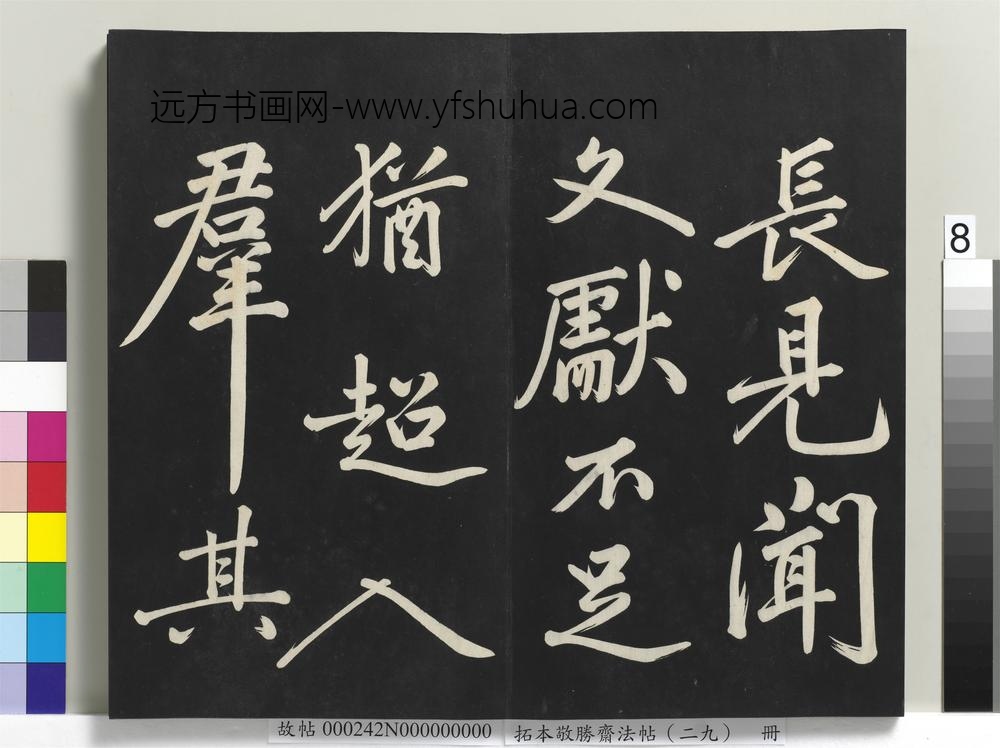 远方书画网-www.yfshuhua.com
長見聞
文獻不足
猶超入
羣其
8
故帖 000242N000000000
拓本敬勝齋法帖（二九） 冊